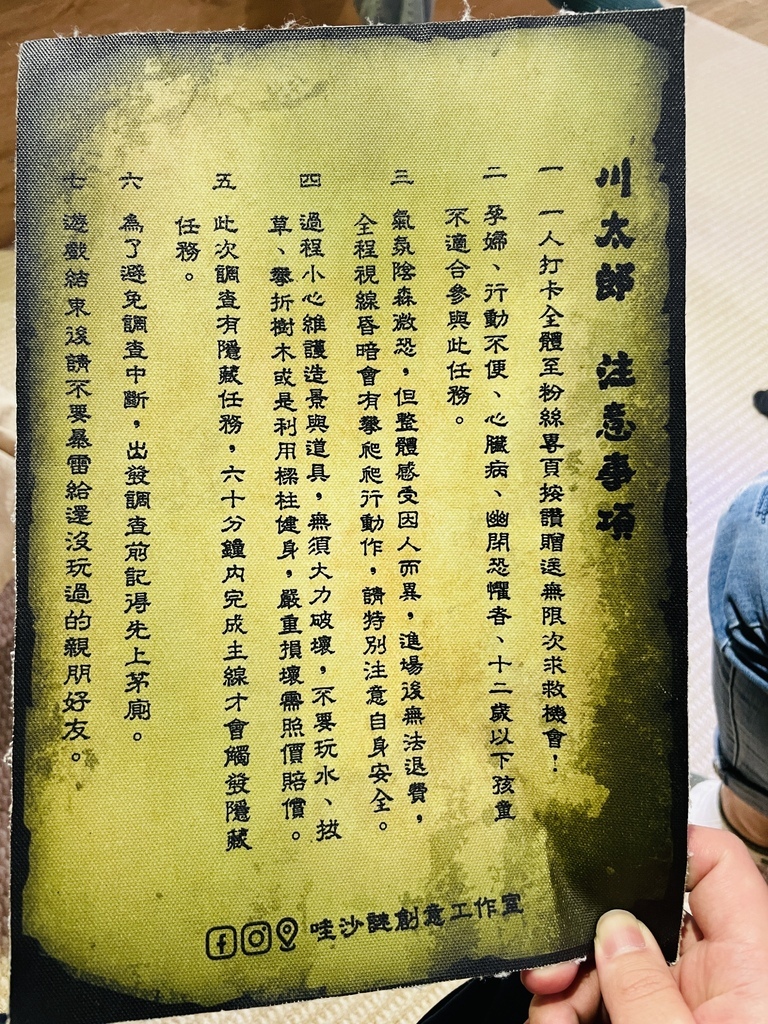 川太郎 注意事項
一 一人打卡全體至粉絲專頁按讚贈送無限次求救機會！
二 孕婦、行動不便、心臟病、幽閉恐懼者、十二歲以下孩童
不適合參與此任務。
三 氣氛陰森微恐，但整體感受因人而異，進場後無法退費，
全程視線昏暗會有攀爬爬行動作，請特別注意自身安全。
四 過程小心維護造景與道具，無須大力破壞，不要玩水、拔
草、攀折樹木或是利用樑柱健身，嚴重損壞需照價賠償。
五 此次調查有隱藏任務，六十分鐘內完成主線才會觸發隱藏
任務。
六 為了避免調查中斷，出發調查前記得先上茅廁。
七 遊戲結束後請不要暴雷給還沒玩過的親朋好友。
哇沙謎創意工作室